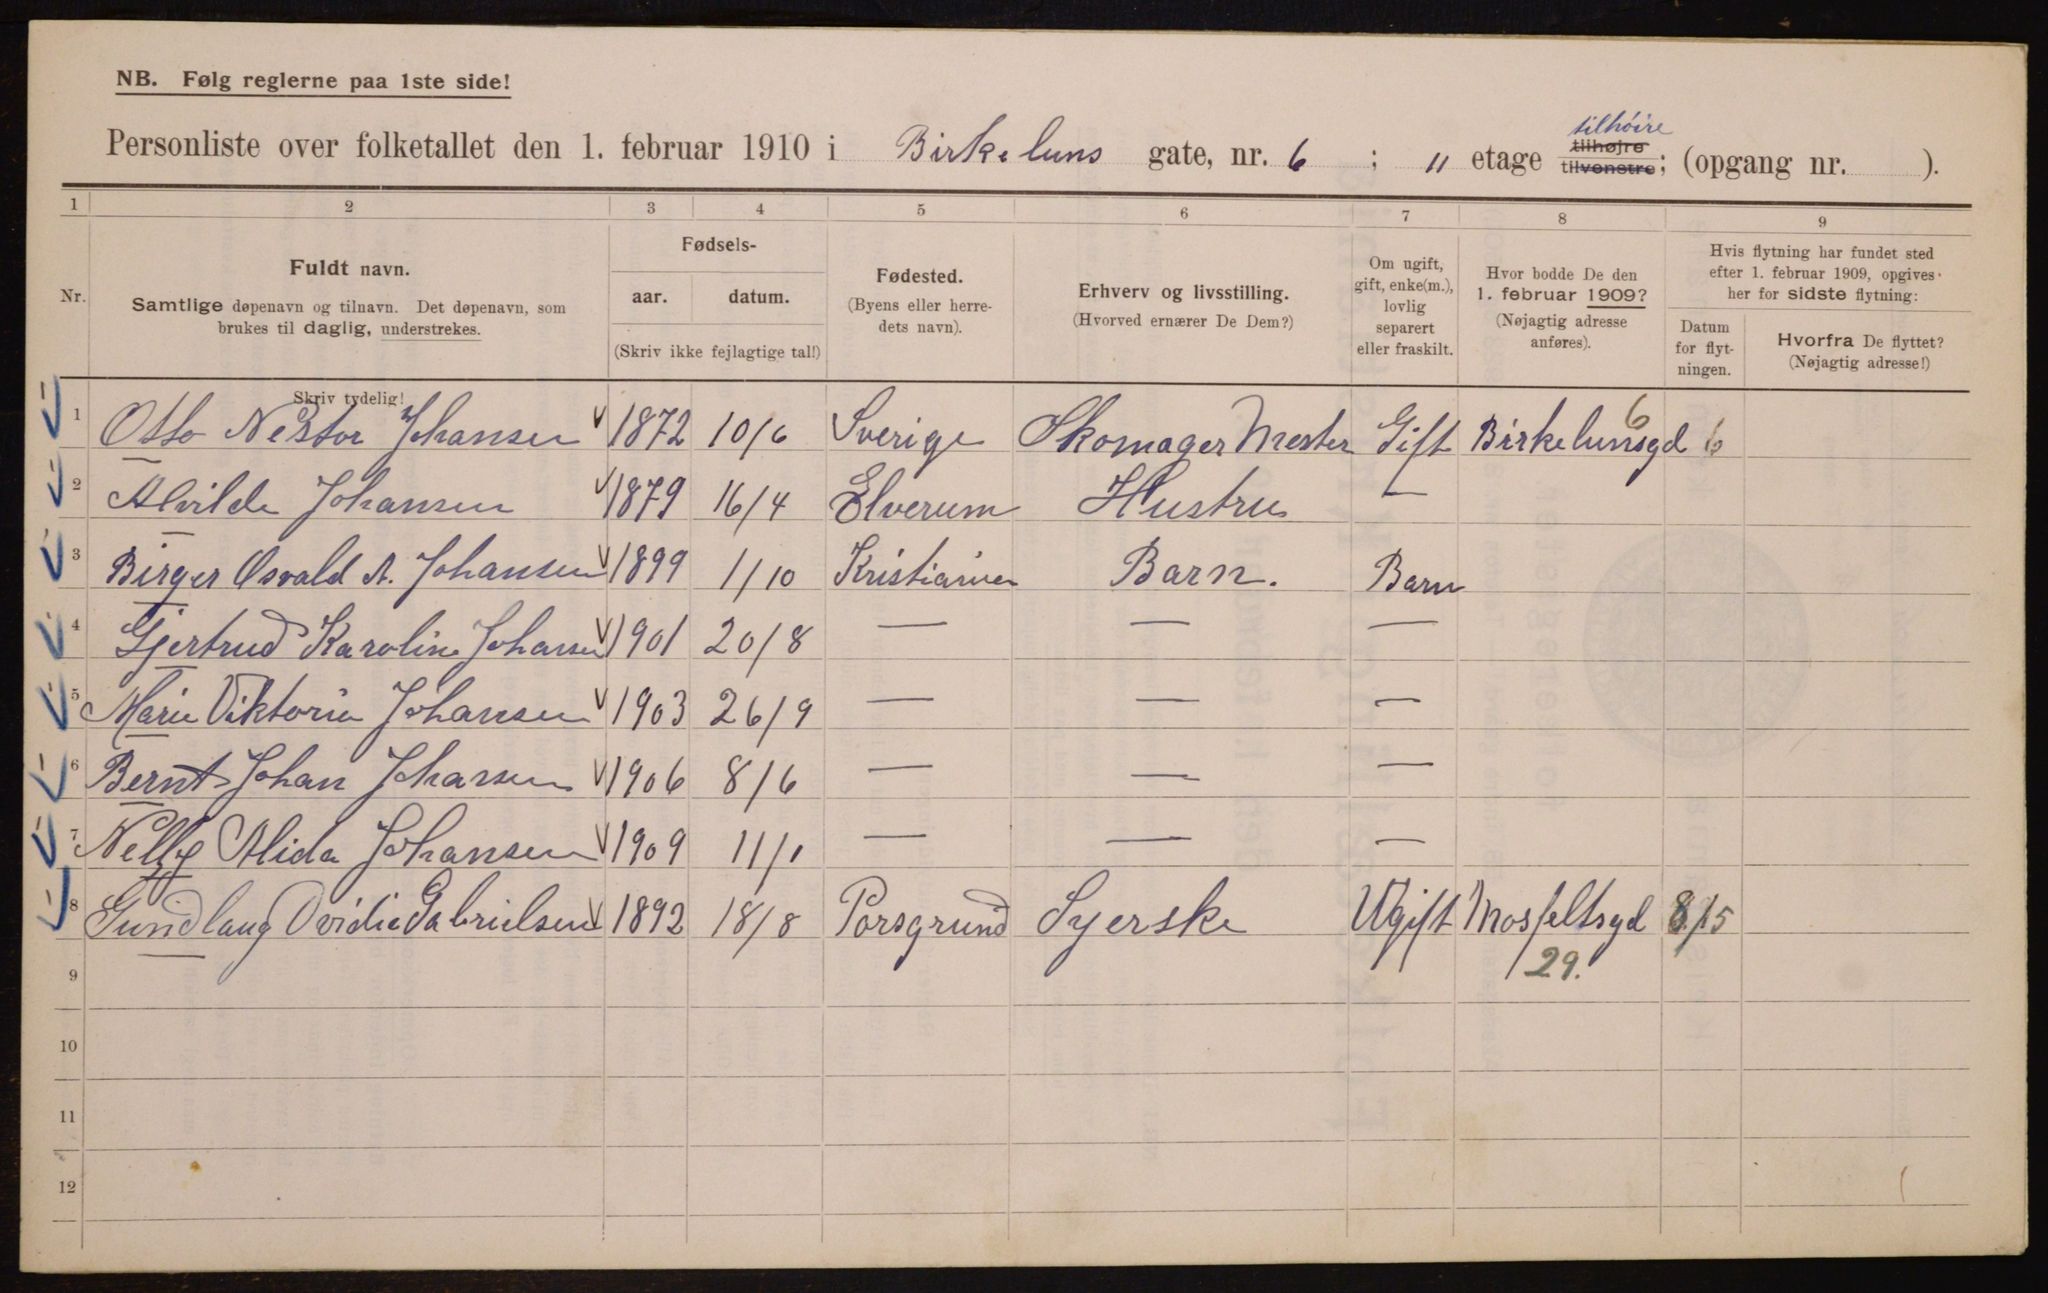 NB. Følg reglerne paa 1ste side!
tilhöire
Personliste over folketallet den 1. februar 1910 i Birkeluns gate, nr. 6 ; 11 etage tilhøjre tilvenstre; (opgang nr. ).
1 2 3 4 5 6 7 8 9
Nr.
Fuldt navn.
Samtlige døpenavn og tilnavn. Det døpenavn, som
brukes til daglig, understrekes.
Skriv tydelig!
Fødsels-
aar. datum.
(Skriv ikke fejlagtige tal!)
Fødested.
(Byens eller herre-
dets navn).
Erhverv og livsstilling.
(Hvorved ernærer De Dem?)
Om ugift,
gift, enke(m.),
lovlig
separert
eller fraskilt.
Hvor bodde De den
1. februar 1909?
(Nøjagtig adresse
anføres).
Hvis flytning har fundet sted
efter 1. februar 1909, opgives
her for sidste flytning:
Datum
for flyt-
ningen.
Hvorfra De flyttet?
(Nøjagtig adresse!)
1 Otto Nestor Johansen 1872 10/6 Sverige Skomager Mester Gift Birkelunsgd 6
2 Alvilde Johansen 1879 16/4 Elverum Hustru —
3 Birger Osvald A. Johansen 1899 1/10 Kristiania Barn. Barn
4 Gjertrud Karoline Johansen 1901 20/8 — — —
5 Marie Viktoria Johansen 1903 26/9 — — —
6 Bernt Johan Johansen 1906 8/6 — — —
7 Nelly Alida Johansen 1909 11/1 — — —
8 Gundlaug Ovidie Gabrielsen 1892 18/8 Porsgrund Syerske Ugift Mosfeltsgd 8/5
29.
9
10
11
12